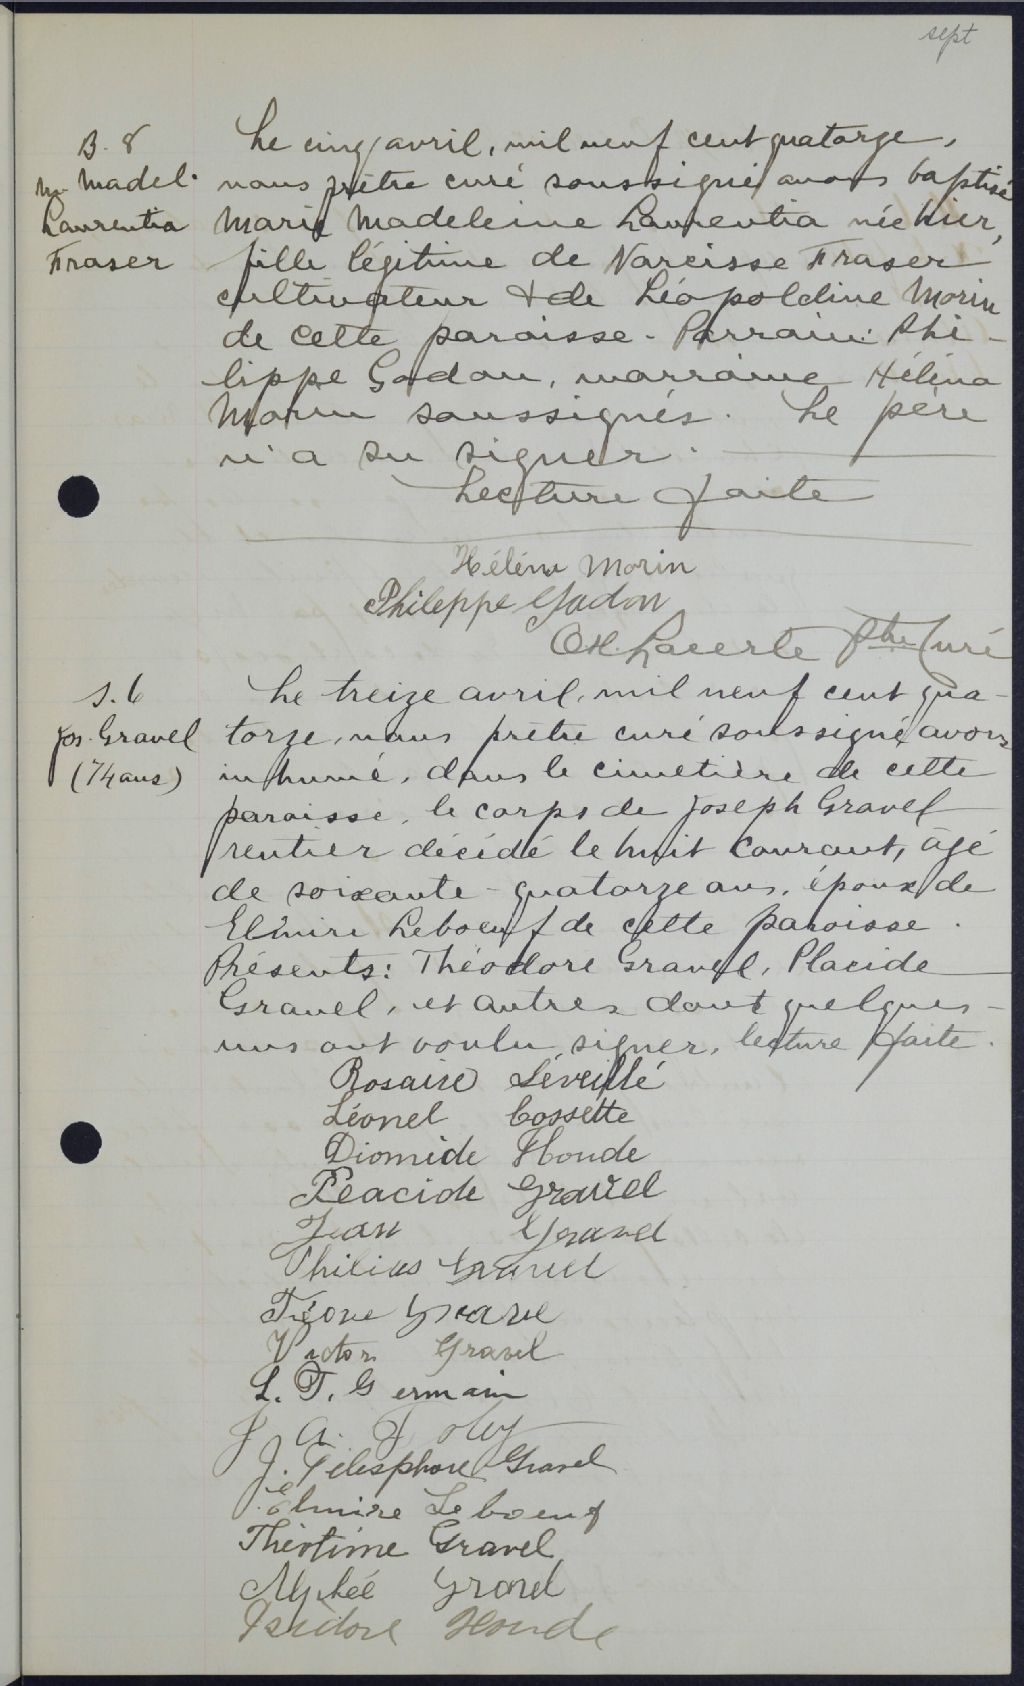 sept
B. 8
M. Madel.
Laurentia
Fraser
Le cinq avril, mil neuf cent quatorze,
nous prêtre curé soussigné avons baptisé
Marie Madeleine Laurentia née hier,
fille légitime de Narcisse Fraser
cultivateur & de Léopoldine Morin
de cette paroisse - Parrain: Phi-
lippe Gadou, marraine Héléna
Morin soussignés. Le père
n'a su signer.
Lecture faite
Hélèna Morin
Philippe Gadou
Lacerte Ptre Curé
S. 6
Jos. Gravel
(74 ans)
Le treize avril, mil neuf cent qua-
torze, nous prêtre curé soussigné avons
inhumé, dans le cimetière de cette
paroisse, le corps de Joseph Gravel
rentier décédé le huit courant, âgé
de soixante-quatorze ans, époux de
Elmire Leboeuf de cette paroisse.
Présents: Théodore Gravel, Placide
Gravel, et autres dont quelques-
uns ont voulu signer, lecture faite.
Rosaire Léveillé
Léonel Cossette
Diomide Houde
Placide Gravel
Jean Gravel
Philias Gravel
Gravel
Victor Gravel
L. T. Germain
J. A. Foley
J. Télesphore Gravel
Elmire Leboeuf
Théotime Gravel
Alphée Gravel
Isidore Houde